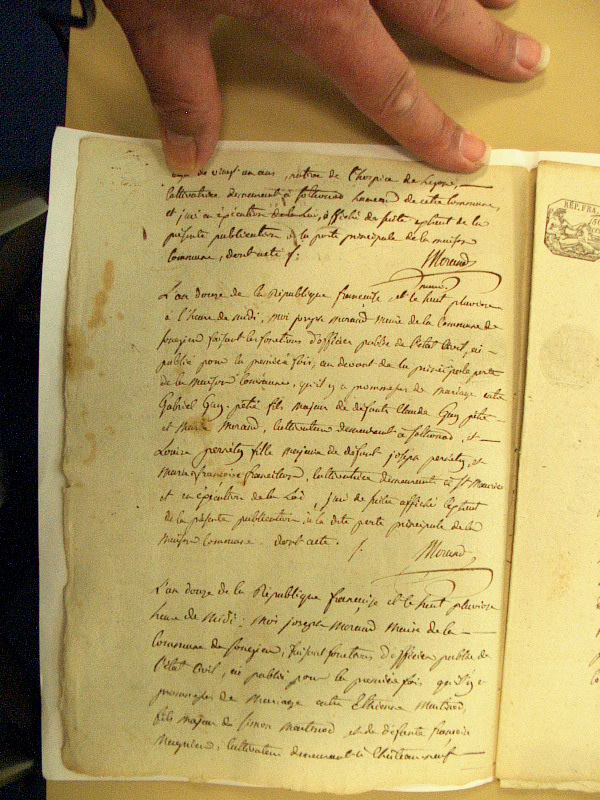 de vingt un ans, native de l'hospice de Lyon,
Cultivatrice demeurant à hameau de cette Commune,
et j'ai en exécution de la Loi, affiché de suite extrait de la
présente publication à la porte principale de la maison
Commune, dont acte
Morand
maire
L'an douze de la République française, et le huit pluviose
à l'heure de midi, moi joseph morand maire de la Commune de
foncejeu faisant les fonctions d'officier public de l'état Civil, ai
publié pour la première fois, au devant de la principale porte
de la maison Commune, qu'il y a promesses de mariage entre
Gabriel Guy-pété fils majeur de défunts Claude Guy pété
et Marie Morand, Cultivateur demeurant à et
Louise fille majeure de défunt joseph et
Marie françoise Cultivatrice demeurante à St Maurice
et en exécution de la Loi, j'ai de suite affiché l'extrait
de la présente publication, à la dite porte principale de la
Maison Commune. dont acte. /.
Morand
L'an douze de la République française et le huit pluviose
heure de Midi; Moi joseph Morand Maire de la
Commune de foncejeu, faisant fonctions d'officier public de
l'état Civil, ai publié pour la première fois qu'il y a
promesses de Mariage entre Ethienne Martinod,
fils majeur de Simon Martinod et de défunte françoise
Cultivateur demeurant à Château-neuf
RÉP. FRA.